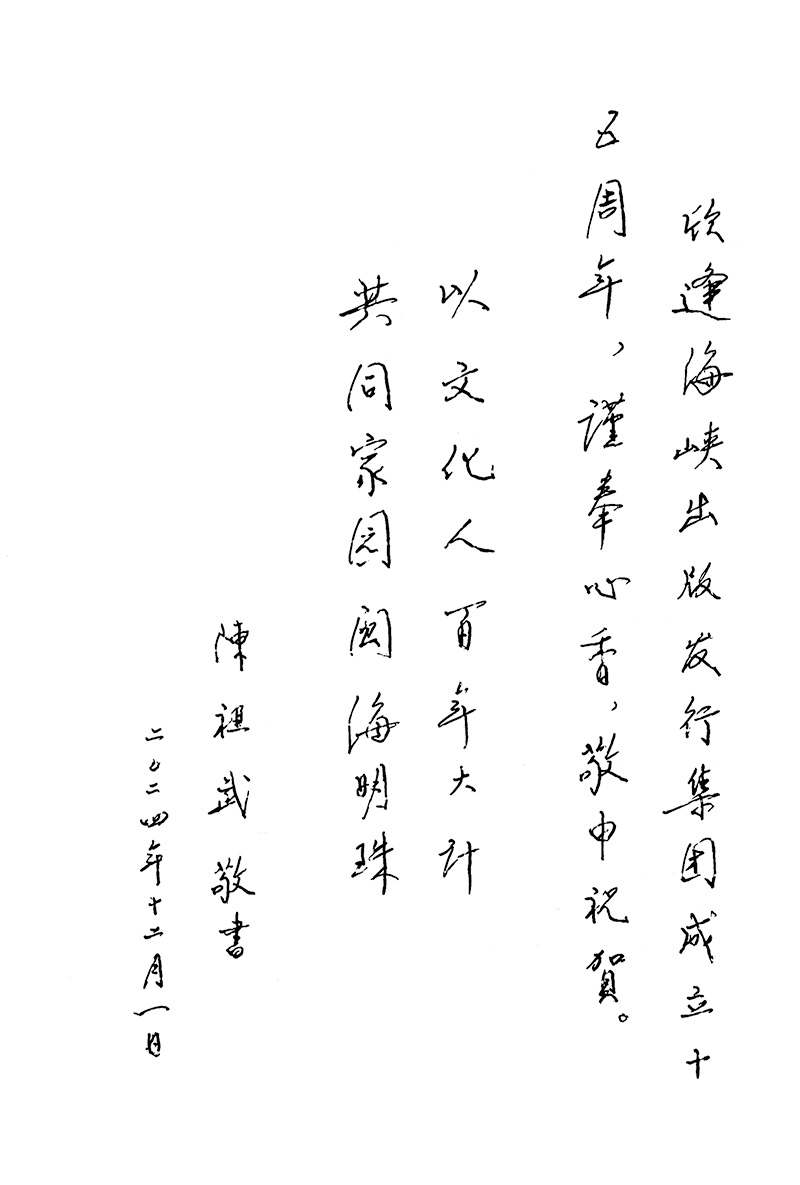 欣逢海峡出版发行集团成立十
五周年，謹奉心香，敬申祝賀。
以文化人百年大计
共同家园闽海明珠
陳祖武敬書
二〇二四年十二月一日